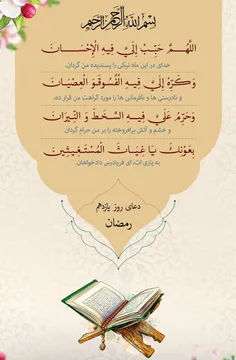 بسم الله الرحمن الرحیم
اَللّهُمَّ حَبِّبْ اِلَيَّ فيهِ الْإِحْسانَ
خدای در این ماه نیکی را پسندیده من گردان،
وَكَرِّهْ اِلَيَّ فيهِ الْفُسُوقَوَ الْعِصْيانَ
و نادرستی ها و نافرمانی ها را مورد کراهت من قرار ده،
وَحَرِّمْ عَلَيَّ فيهِ السَّخَطَ وَ النّيرانَ
و خشم و آتش برافروخته را بر من حرام گردان
بِعَوْنِكَ يا غِياثَ الْمُسْتَغيثينَ
به یاری ات، ای فریادرس دادخواهان.
دعای روز یازدهم
رمضان